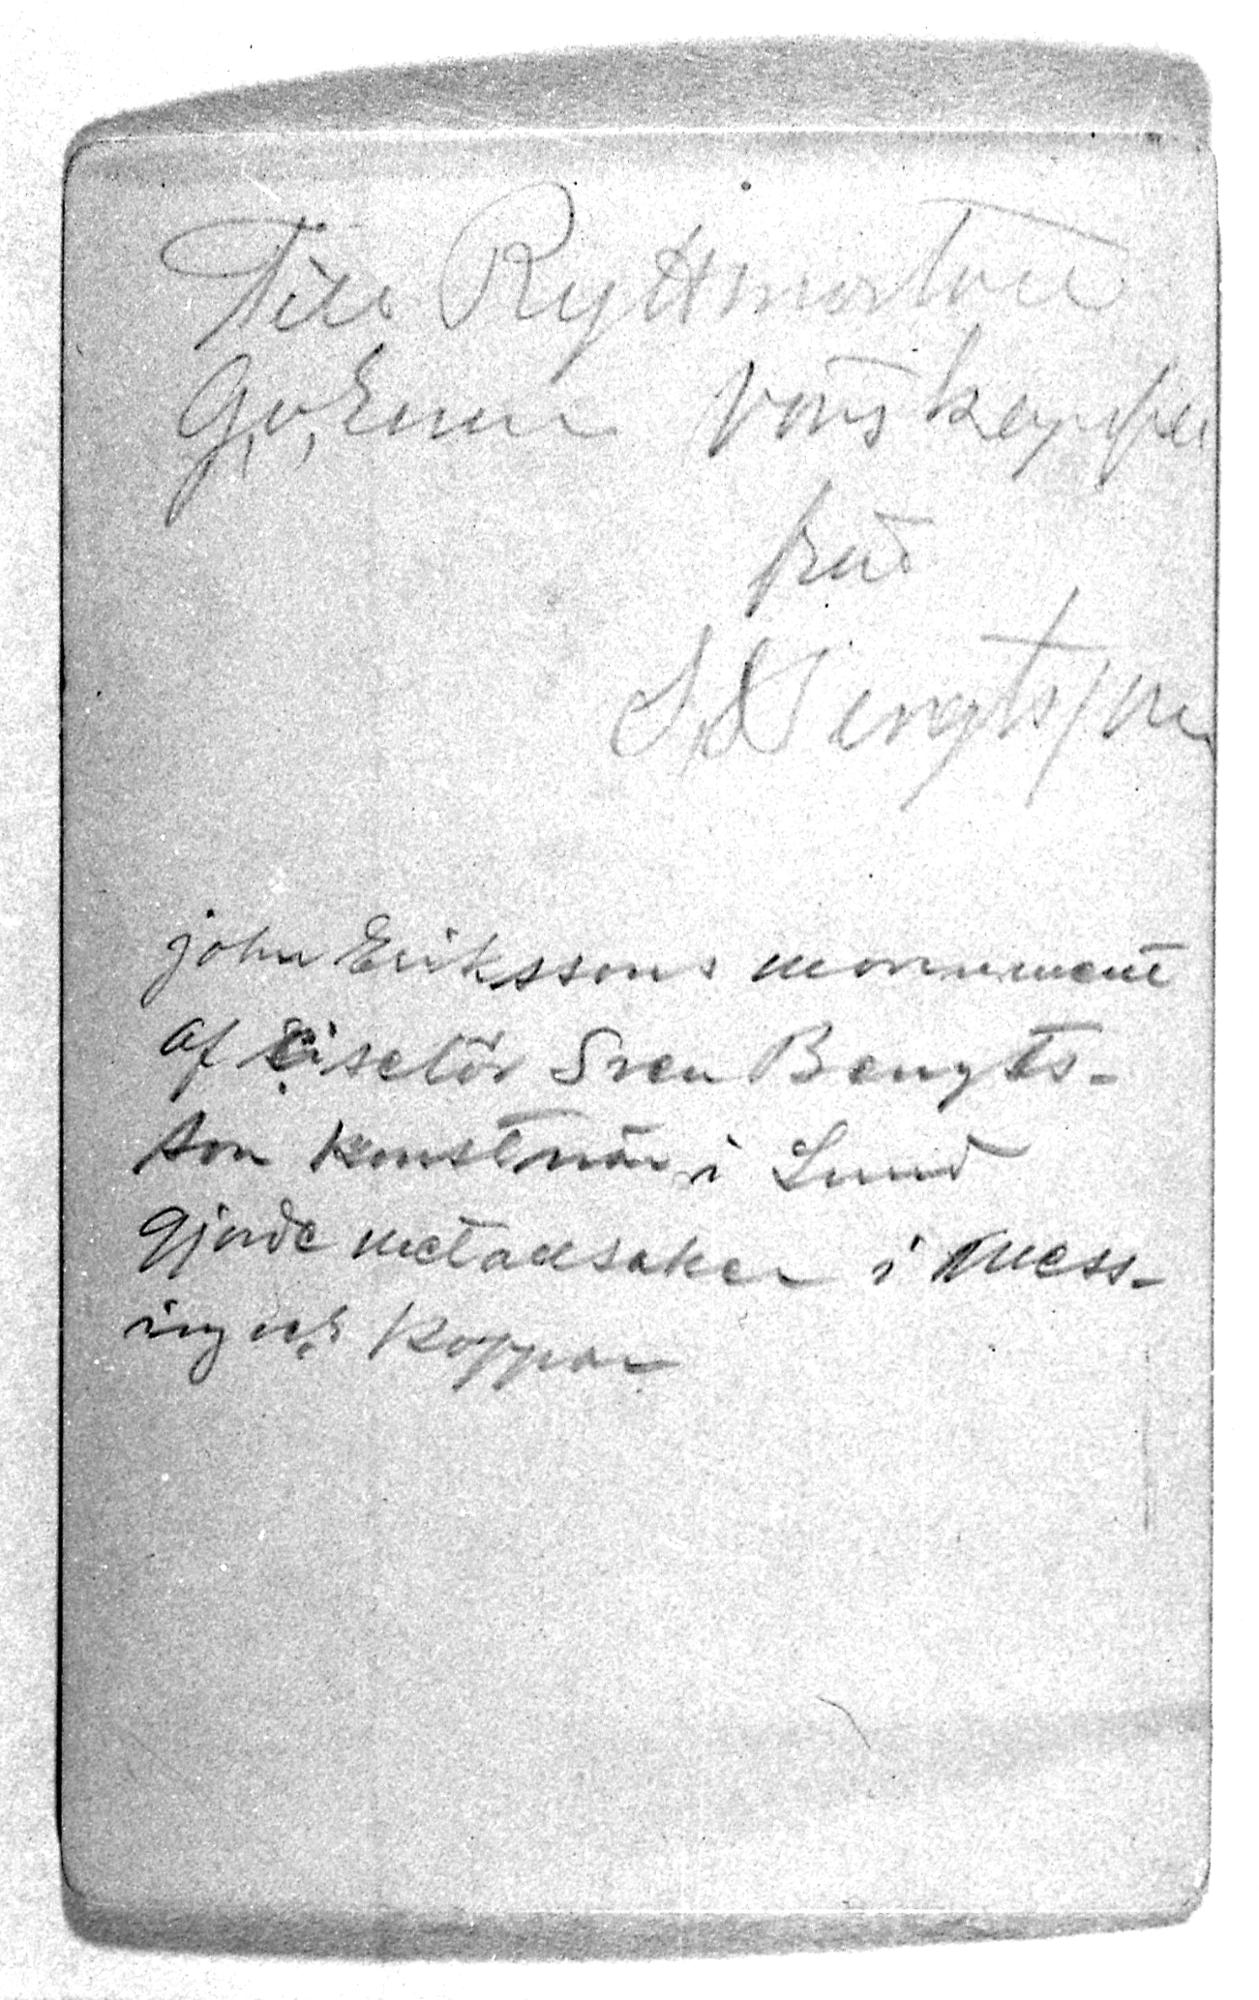 Till Ryttmästare
G. v. Emm Vänskapsfu
från
S. Bengtsson
john Erikssons monument
af Ciselör Sven Bengts-
son konstnär i Lund
gjorde metallsaker i mess-
ing och koppar